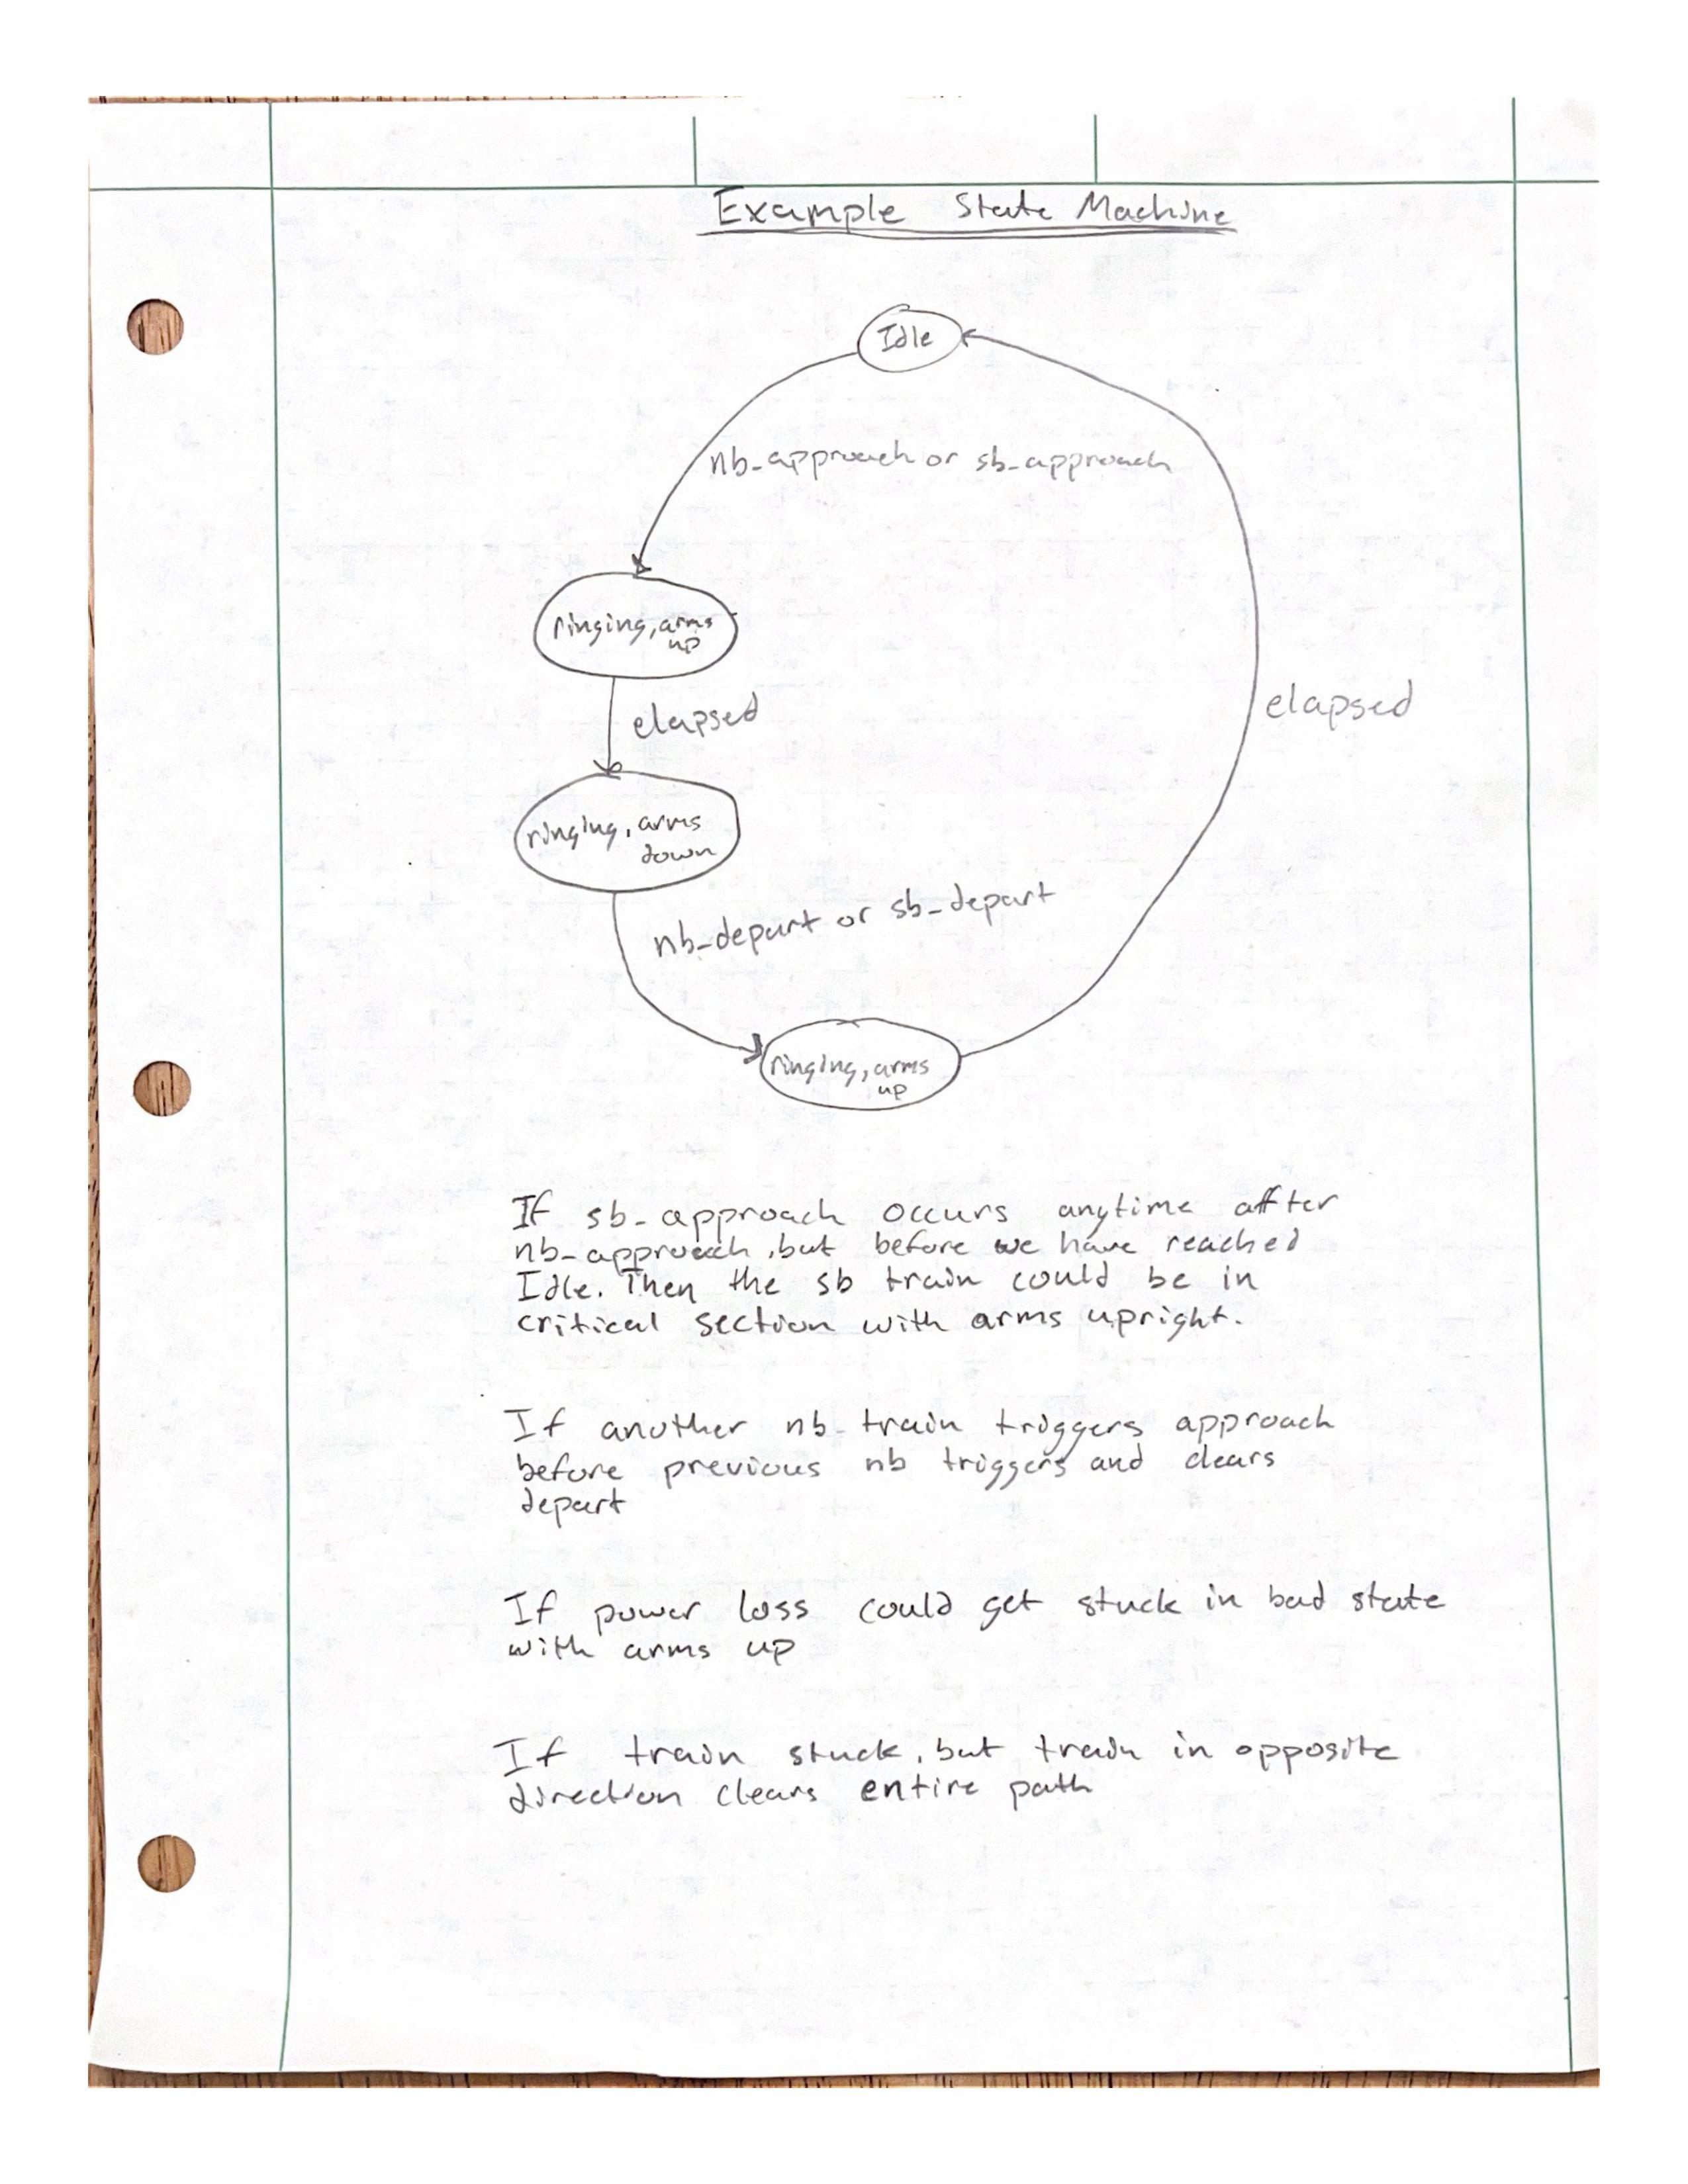 Example State Machine
Idle
nb-approach or sb-approach
ringing, arms
up
elapsed
elapsed
ringing, arms
down
nb-depart or sb-depart
ringing, arms
up
If sb-approach occurs anytime after
nb-approach, but before we have reached
Idle. Then the sb train could be in
critical section with arms upright.
If another nb train triggers approach
before previous nb triggers and clears
depart
If power loss could get stuck in bad state
with arms up
If train stuck, but train in opposite
direction clears entire path